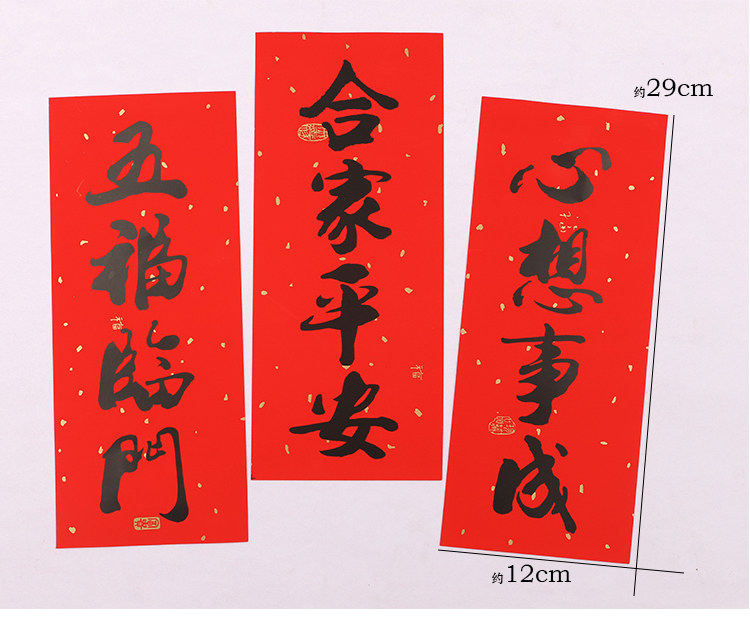 五福臨門
合家平安
心想事成
约29cm
约12cm